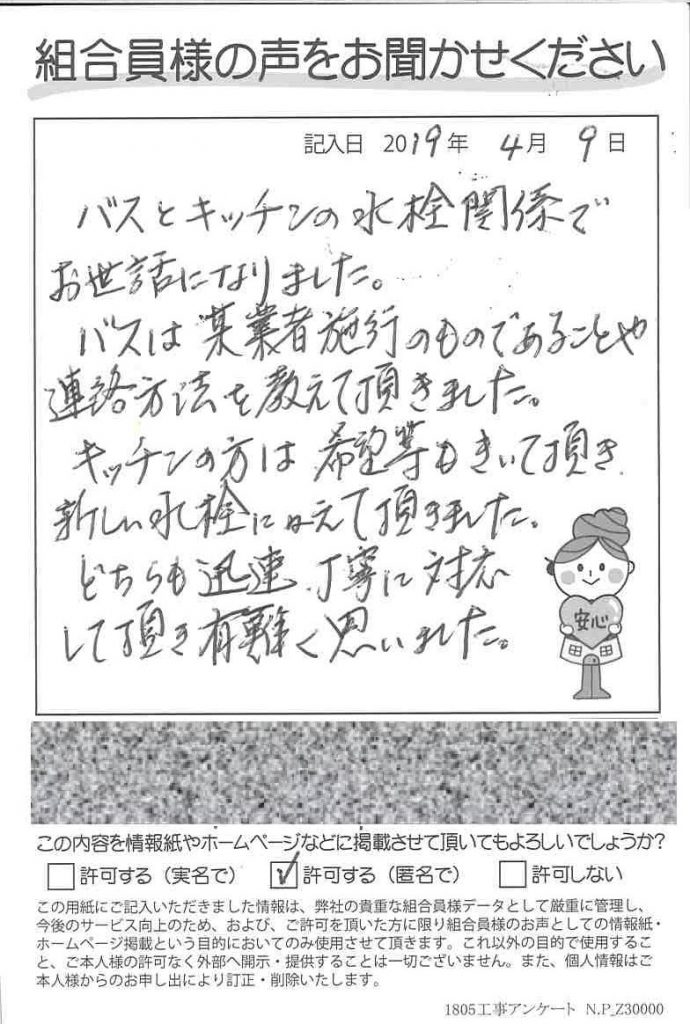 組合員様の声をお聞かせください
記入日 2019年 4月 9日
バスとキッチンの水栓関係で
お世話になりました。
バスは某業者施行のものであることや
連絡方法を教えて頂きました。
キッチンの方は希望等もきいて頂き
新しい水栓にかえて頂きました。
どちらも迅速、丁寧に対応
して頂き有難く思いました。
安心
この内容を情報紙やホームページなどに掲載させて頂いてもよろしいでしょうか?
許可する（実名で） 許可する（匿名で） 許可しない
この用紙にご記入いただきました情報は、弊社の貴重な組合員様データとして厳重に管理し、
今後のサービス向上のため、および、ご許可を頂いた方に限り組合員様のお声としての情報紙・
ホームページ掲載という目的においてのみ使用させて頂きます。これ以外の目的で使用するこ
と、ご本人様の許可なく外部へ開示・提供することは一切ございません。また、個人情報はご
本人様からのお申し出により訂正・削除いたします。
1805工事アンケート N.P_Z30000